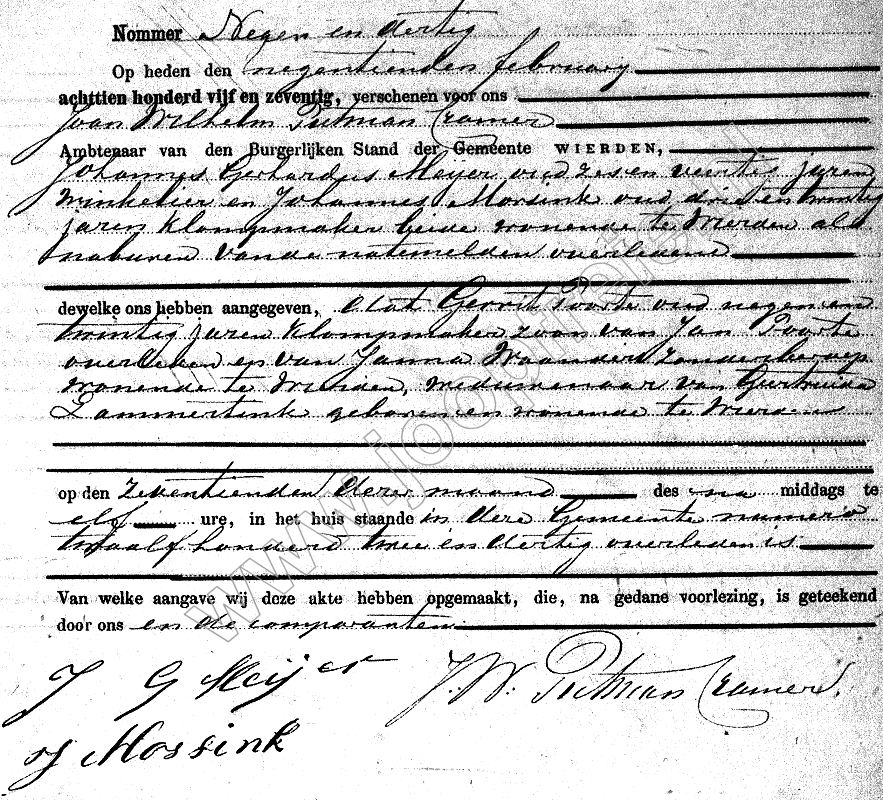 Nommer Negen en dertig
Op heden den negentienden february
achttien honderd vijf en zeventig, verschenen voor ons
Joan Wilhelm Putman Cramer
Ambtenaar van den Burgerlijken Stand der Gemeente WIERDEN,
Johannes Gerhardus Meijer oud zes en veertig jaren
winkelier en Johannes Morsink oud drie en twintig
jaren klompmaker beide wonende te Wierden als
naburen van de natemelden overledene
dewelke ons hebben aangegeven, dat Gerrit Poorte oud negen en
twintig jaren klompmaker zoon van Jan Poorte
overleden en van Janna Waanders zonder beroep
wonende te Wierden, weduwenaar van Geertruida
Lammertink geboren en wonende te Wierden
op den zeventienden dezer maand des na middags te
elf ure, in het huis staande in deze Gemeente numero
twaalf honderd twee en dertig overleden is
Van welke aangave wij deze akte hebben opgemaakt, die, na gedane voorlezing, is geteekend
door ons en de comparanten
J G Meijer
J. W. Putman Cramer.
J Mossink
www.joopinfo.nl